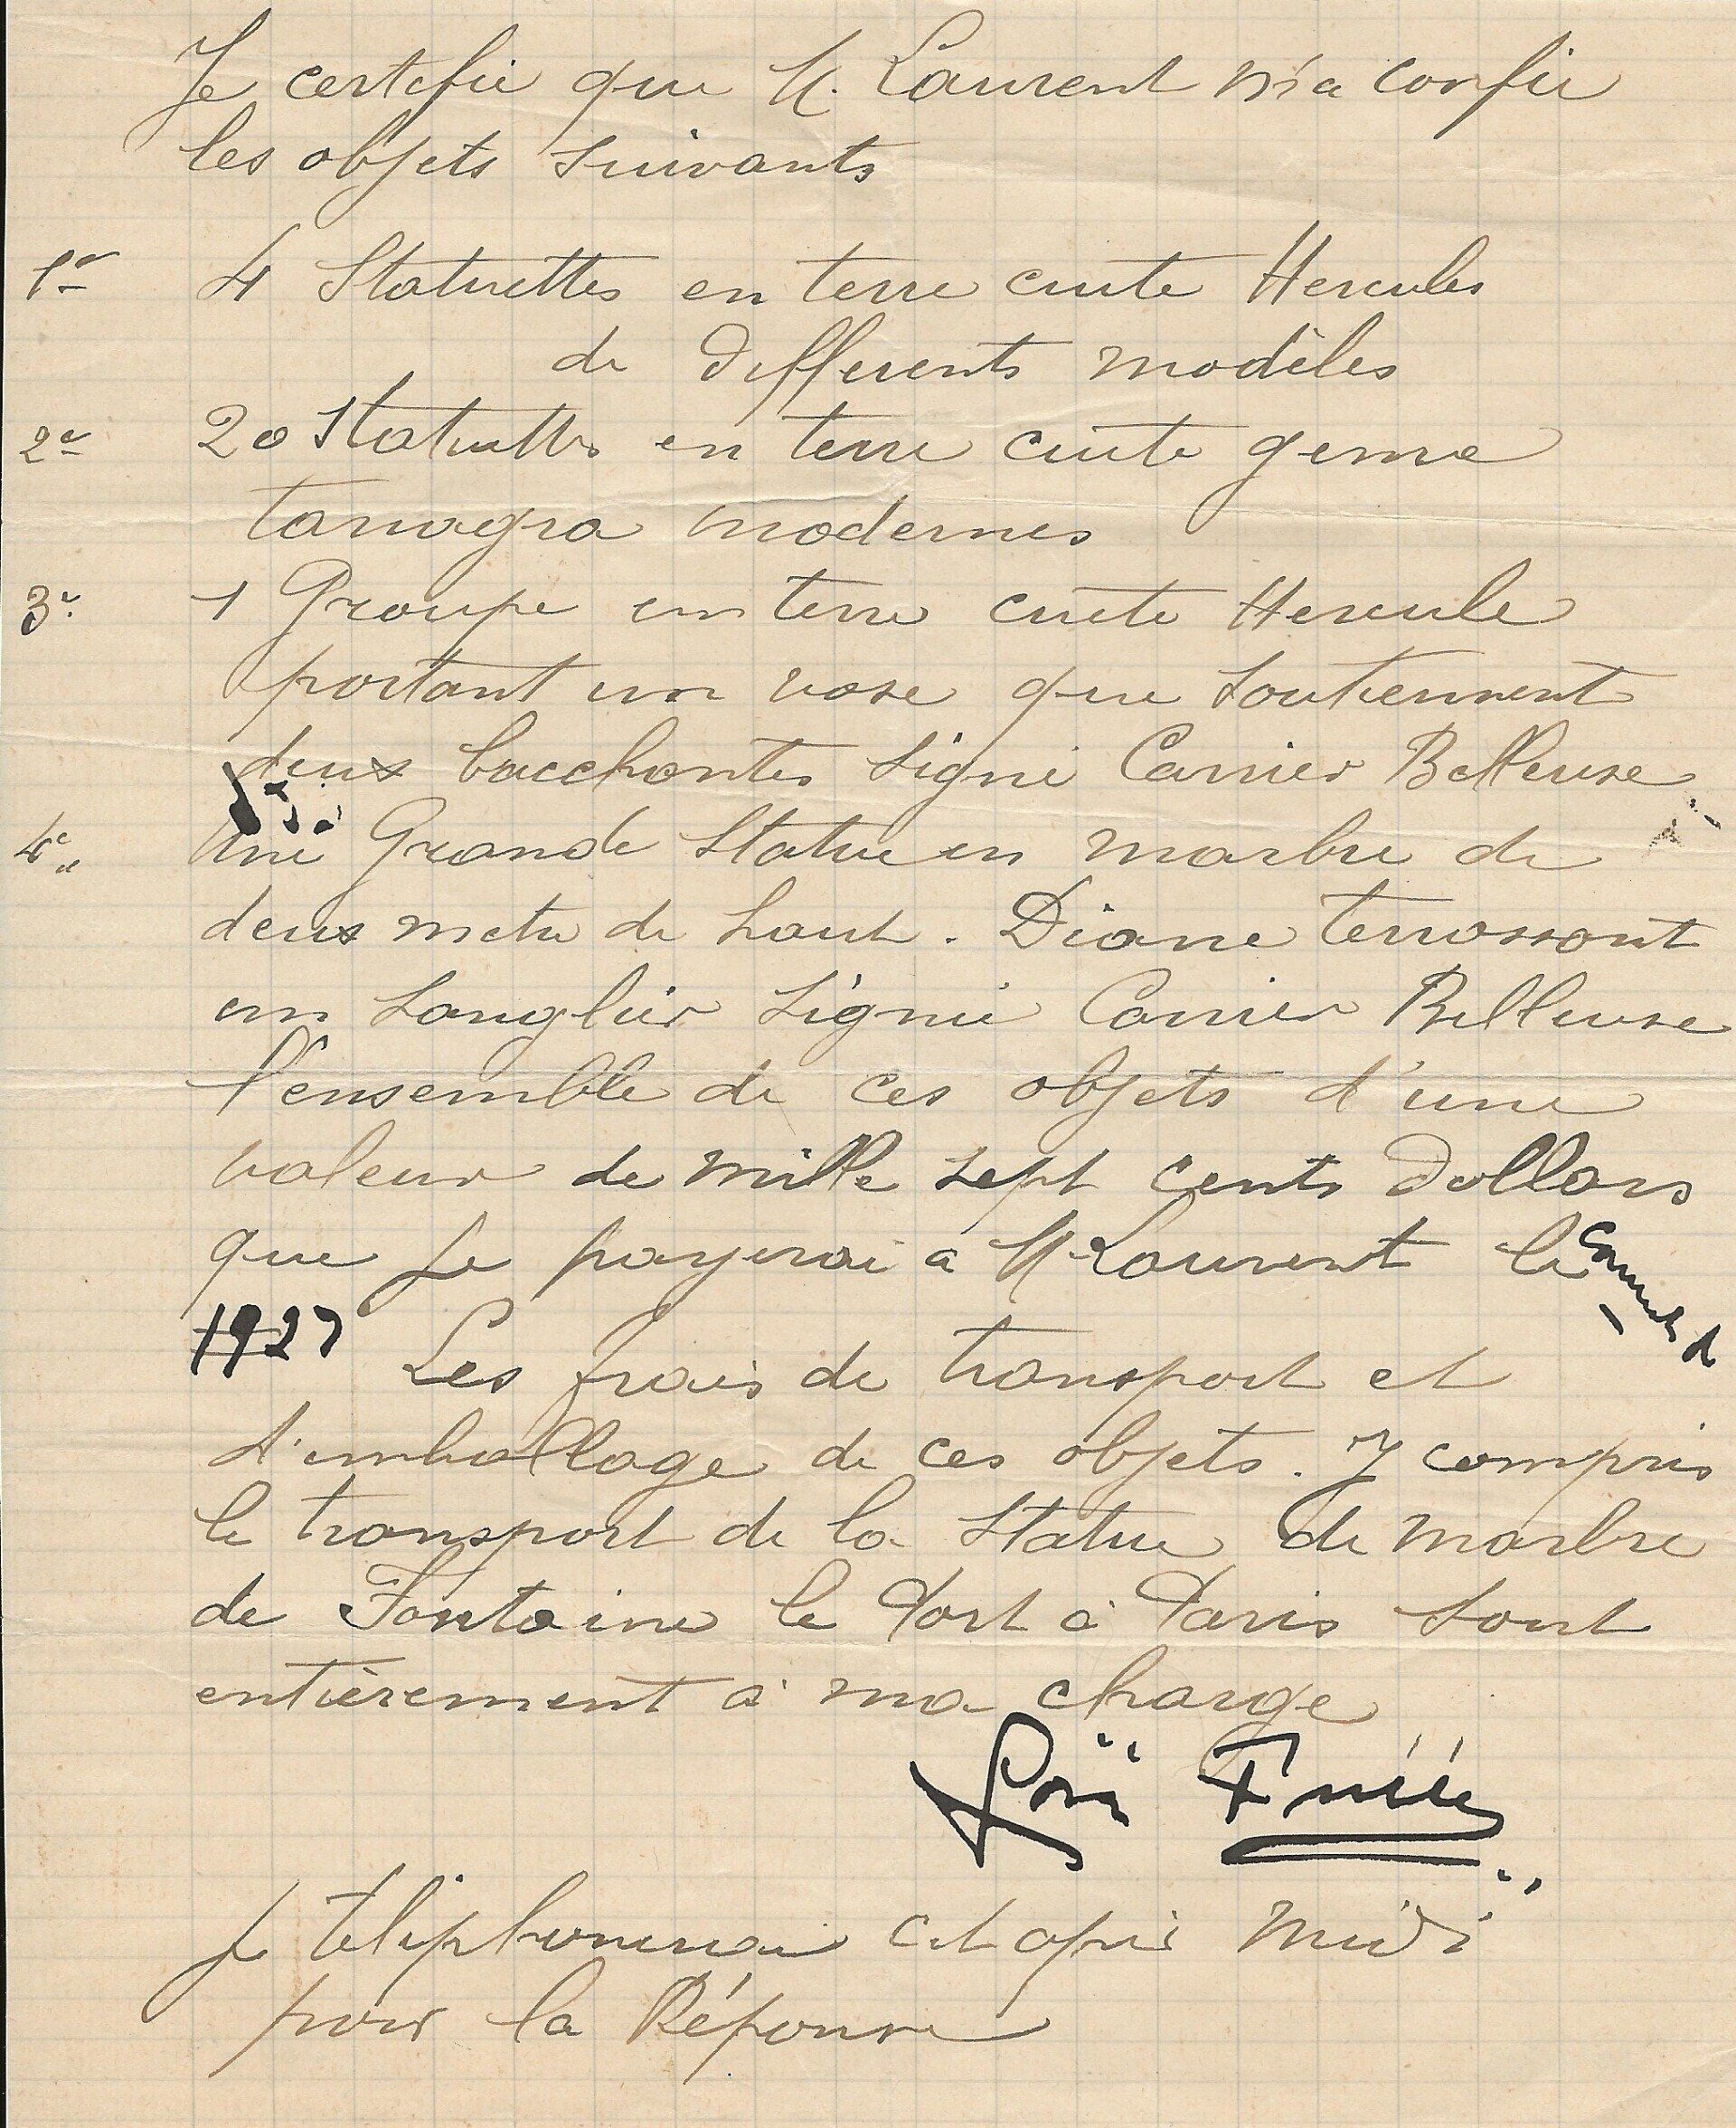 Je certifie que M. Laurent m'a confié
les objets suivants
1er 4 Statuettes en terre cuite Hercules
de differents modèles
2e 20 Statuettes en terre cuite genre
tanagra modernes
3e 1 Groupe en terre cuite Hercule
portant un vase que soutiennent
deux bacchantes signé Carrier Belleuse
4e Une Grande Statue en marbre de
deux metre de haut. Diane terrassant
un sanglier signé Carrier Belleuse
l'ensemble de ces objets d'une
valeur de mille sept cents Dollars
que je payerai a M Laurent le
1927 Les frais de transport et
d'emballage de ces objets. Y compris
le transport de la statue de marbre
de Fontaine le Port à Paris sont
entièrement à ma charge
Loïe Fuller
Je téléphonerai cet après midi
pour la Réponse